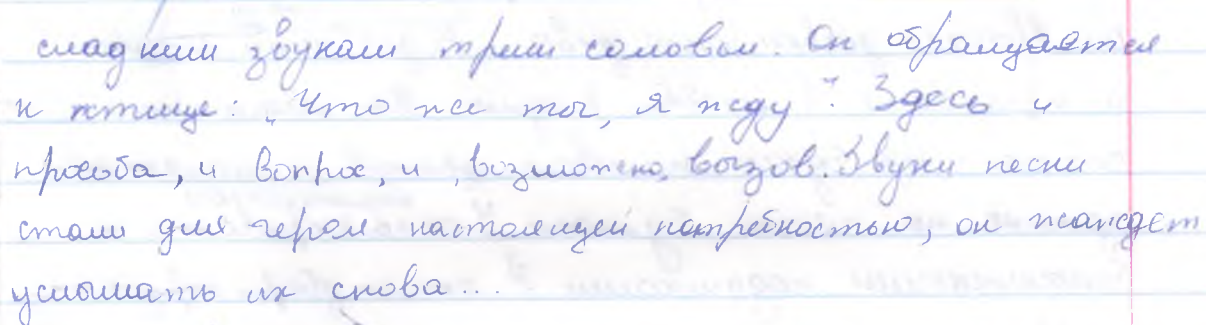 сладким звукам трели соловья. Он обращается
к птице: „Что же ты, я жду". Здесь и
просьба, и вопрос, и, возможно, вызов. Звуки песни
стали для героя настоящей потребностью, он жаждет
услышать их снова...